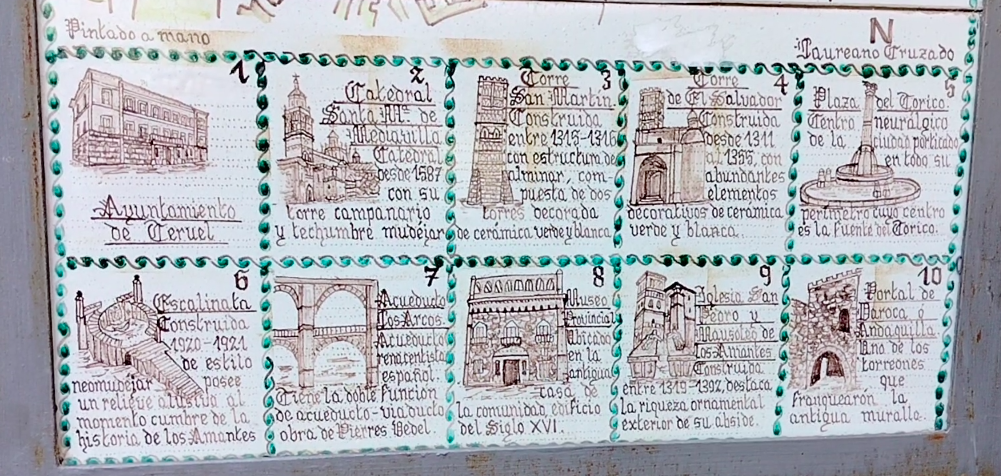 Pintado a mano
N
Laureano Cruzado
1
Ayuntamiento
de Teruel
2
Catedral
Santa Mª de
Mediavilla
Catedral
desde 1587
con su
torre campanario
y techumbre mudéjar
3
Torre
San Martín
Construida
entre 1315-1316
con estructura de
alminar, com-
puesta de dos
torres decorada
de cerámica verde y blanca.
4
Torre
de El Salvador
Construida
desde 1311
al 1385, con
abundantes
elementos
decorativos de cerámica
verde y blanca.
5
Plaza del Torico.
Centro neurálgico
de la ciudad porticado
en todo su
perímetro cuyo centro
es la Fuente del Torico.
6
Escalinata
Construida
1920-1921
de estilo
neomudejar posee
un relieve alusivo al
momento cumbre de la
historia de los Amantes
7
Acueducto
Los Arcos.
Acueducto
renacentista
español.
Tiene la doble función
de acueducto-viaducto
obra de Pierres Vedel.
8
Museo
Provincial
Ubicado
en la
antigua
casa de
la comunidad, edificio
del Siglo XVI.
9
Iglesia San
Pedro y
Mausoleo de
los Amantes
Construida
entre 1319-1392, destaca
la riqueza ornamental
exterior de su ábside.
10
Portal de
Daroca o
Andaquilla.
Uno de los
torreones
que
franquearon la
antigua muralla.